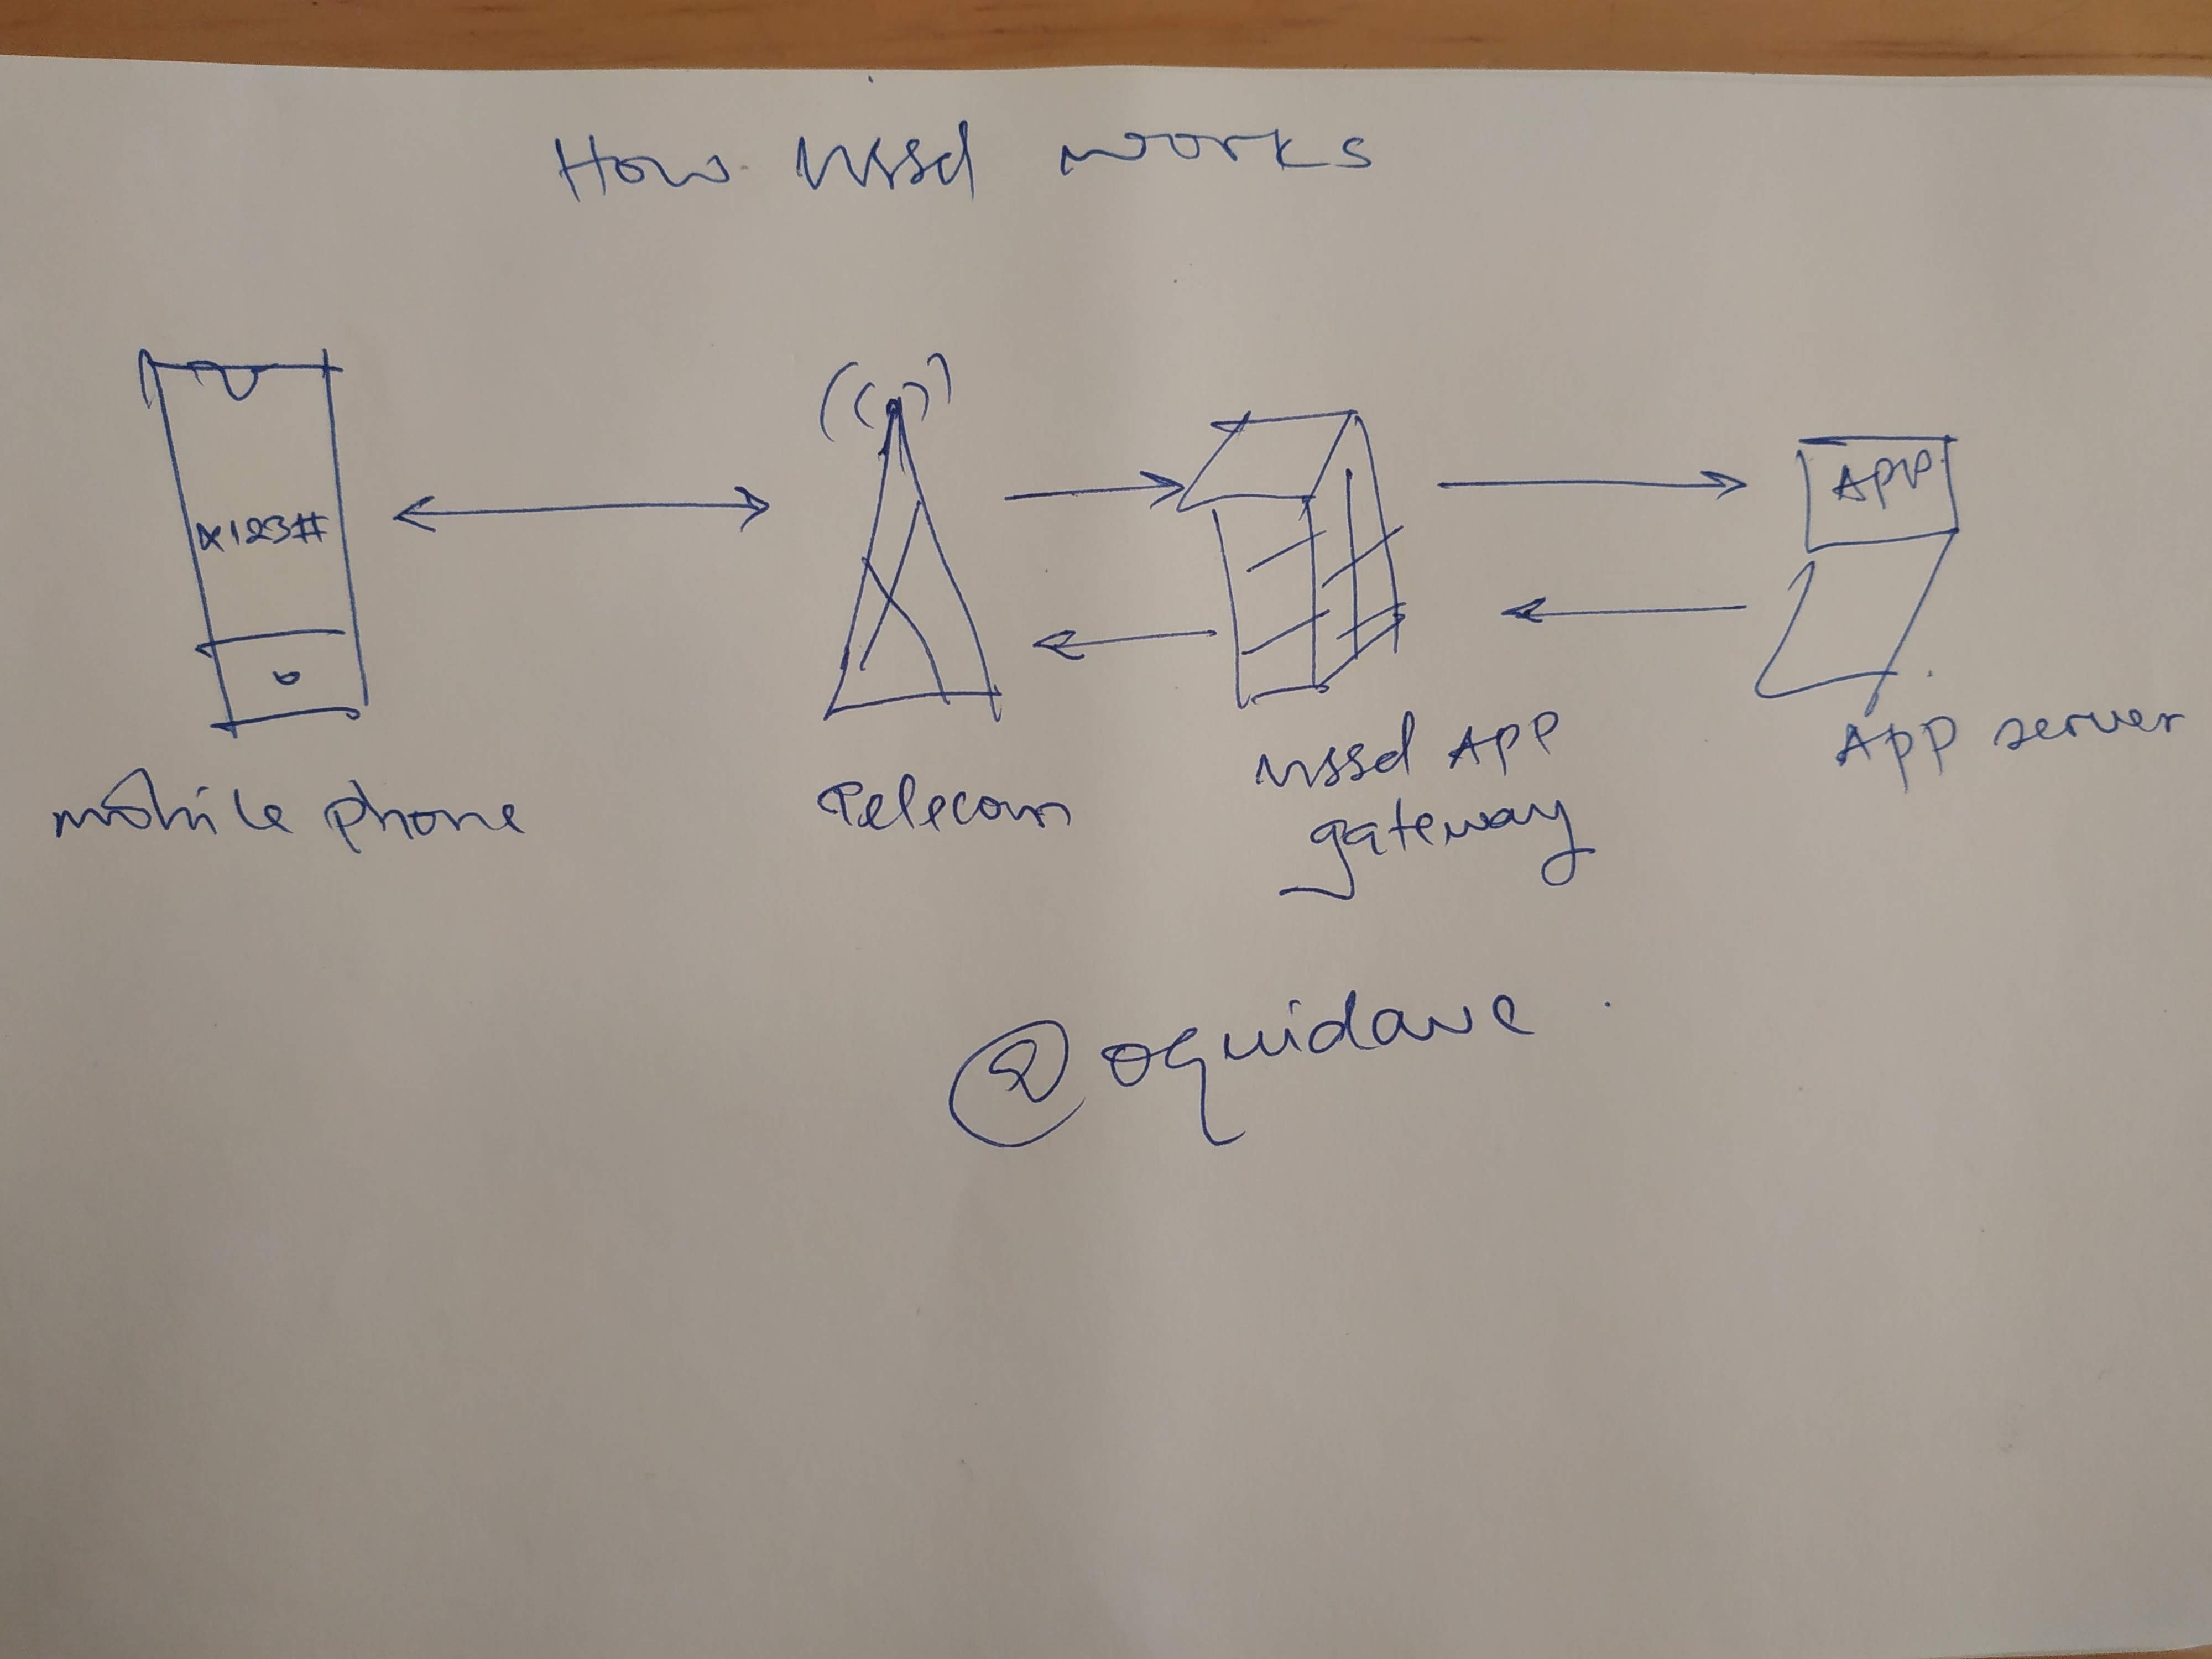 How ussd works
*123#
APP
mobile phone
Telecom
ussd APP
gateway
App server
@oquidave